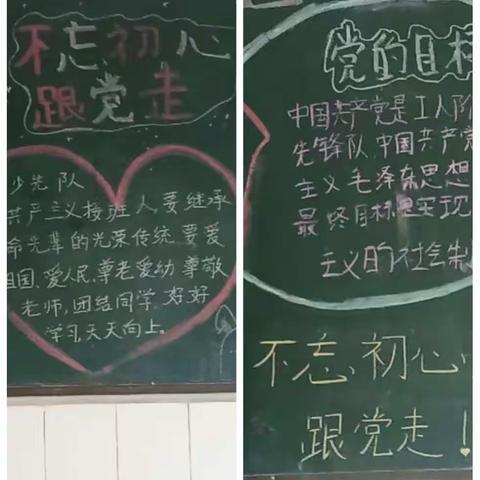 不忘初心
跟党走
少先队
共产主义接班人,要继承
命先辈的光荣传统,要爱
祖国、爱人民,尊老爱幼,尊敬
老师,团结同学,好好
学习,天天向上。
党的目标
中国共产党是工人阶
先锋队,中国共产党
主义毛泽东思想
最终目标是实现
主义的社会制
不忘初心
跟党走!